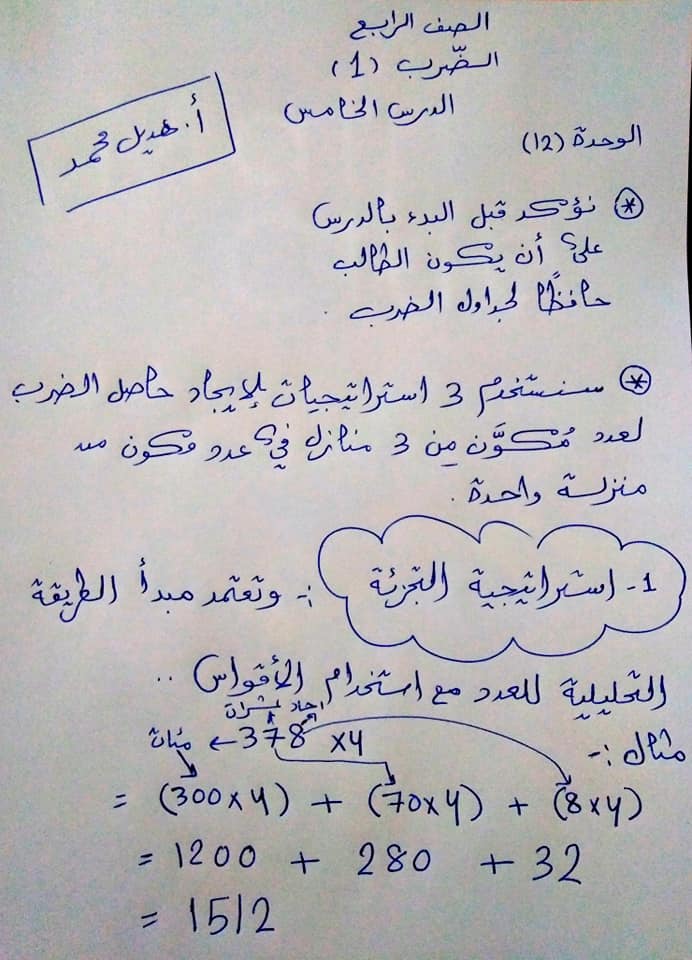 الصف الرابع
الضّرب (1)
الدرس الخامس
أ. هديل محمد
الوحدة (12)
* نؤكد قبل البدء بالدرس
على أن يكون الطالب
حافظًا لجداول الضرب .
* سنستخدم 3 استراتيجيات لإيجاد حاصل الضرب
لعدد مُكوَّن مِن 3 منازل في عدد مكون من
منزلة واحدة .
1- استراتيجية التجزئة :- وتعتمد مبدأ الطريقة
التحليلية للعدد مع استخدام الأقواس ..
احاد عشرات
مثال :- 378 x4 ← مئات
= (300x4) + (70x4) + (8x4)
= 1200 + 280 + 32
= 1512